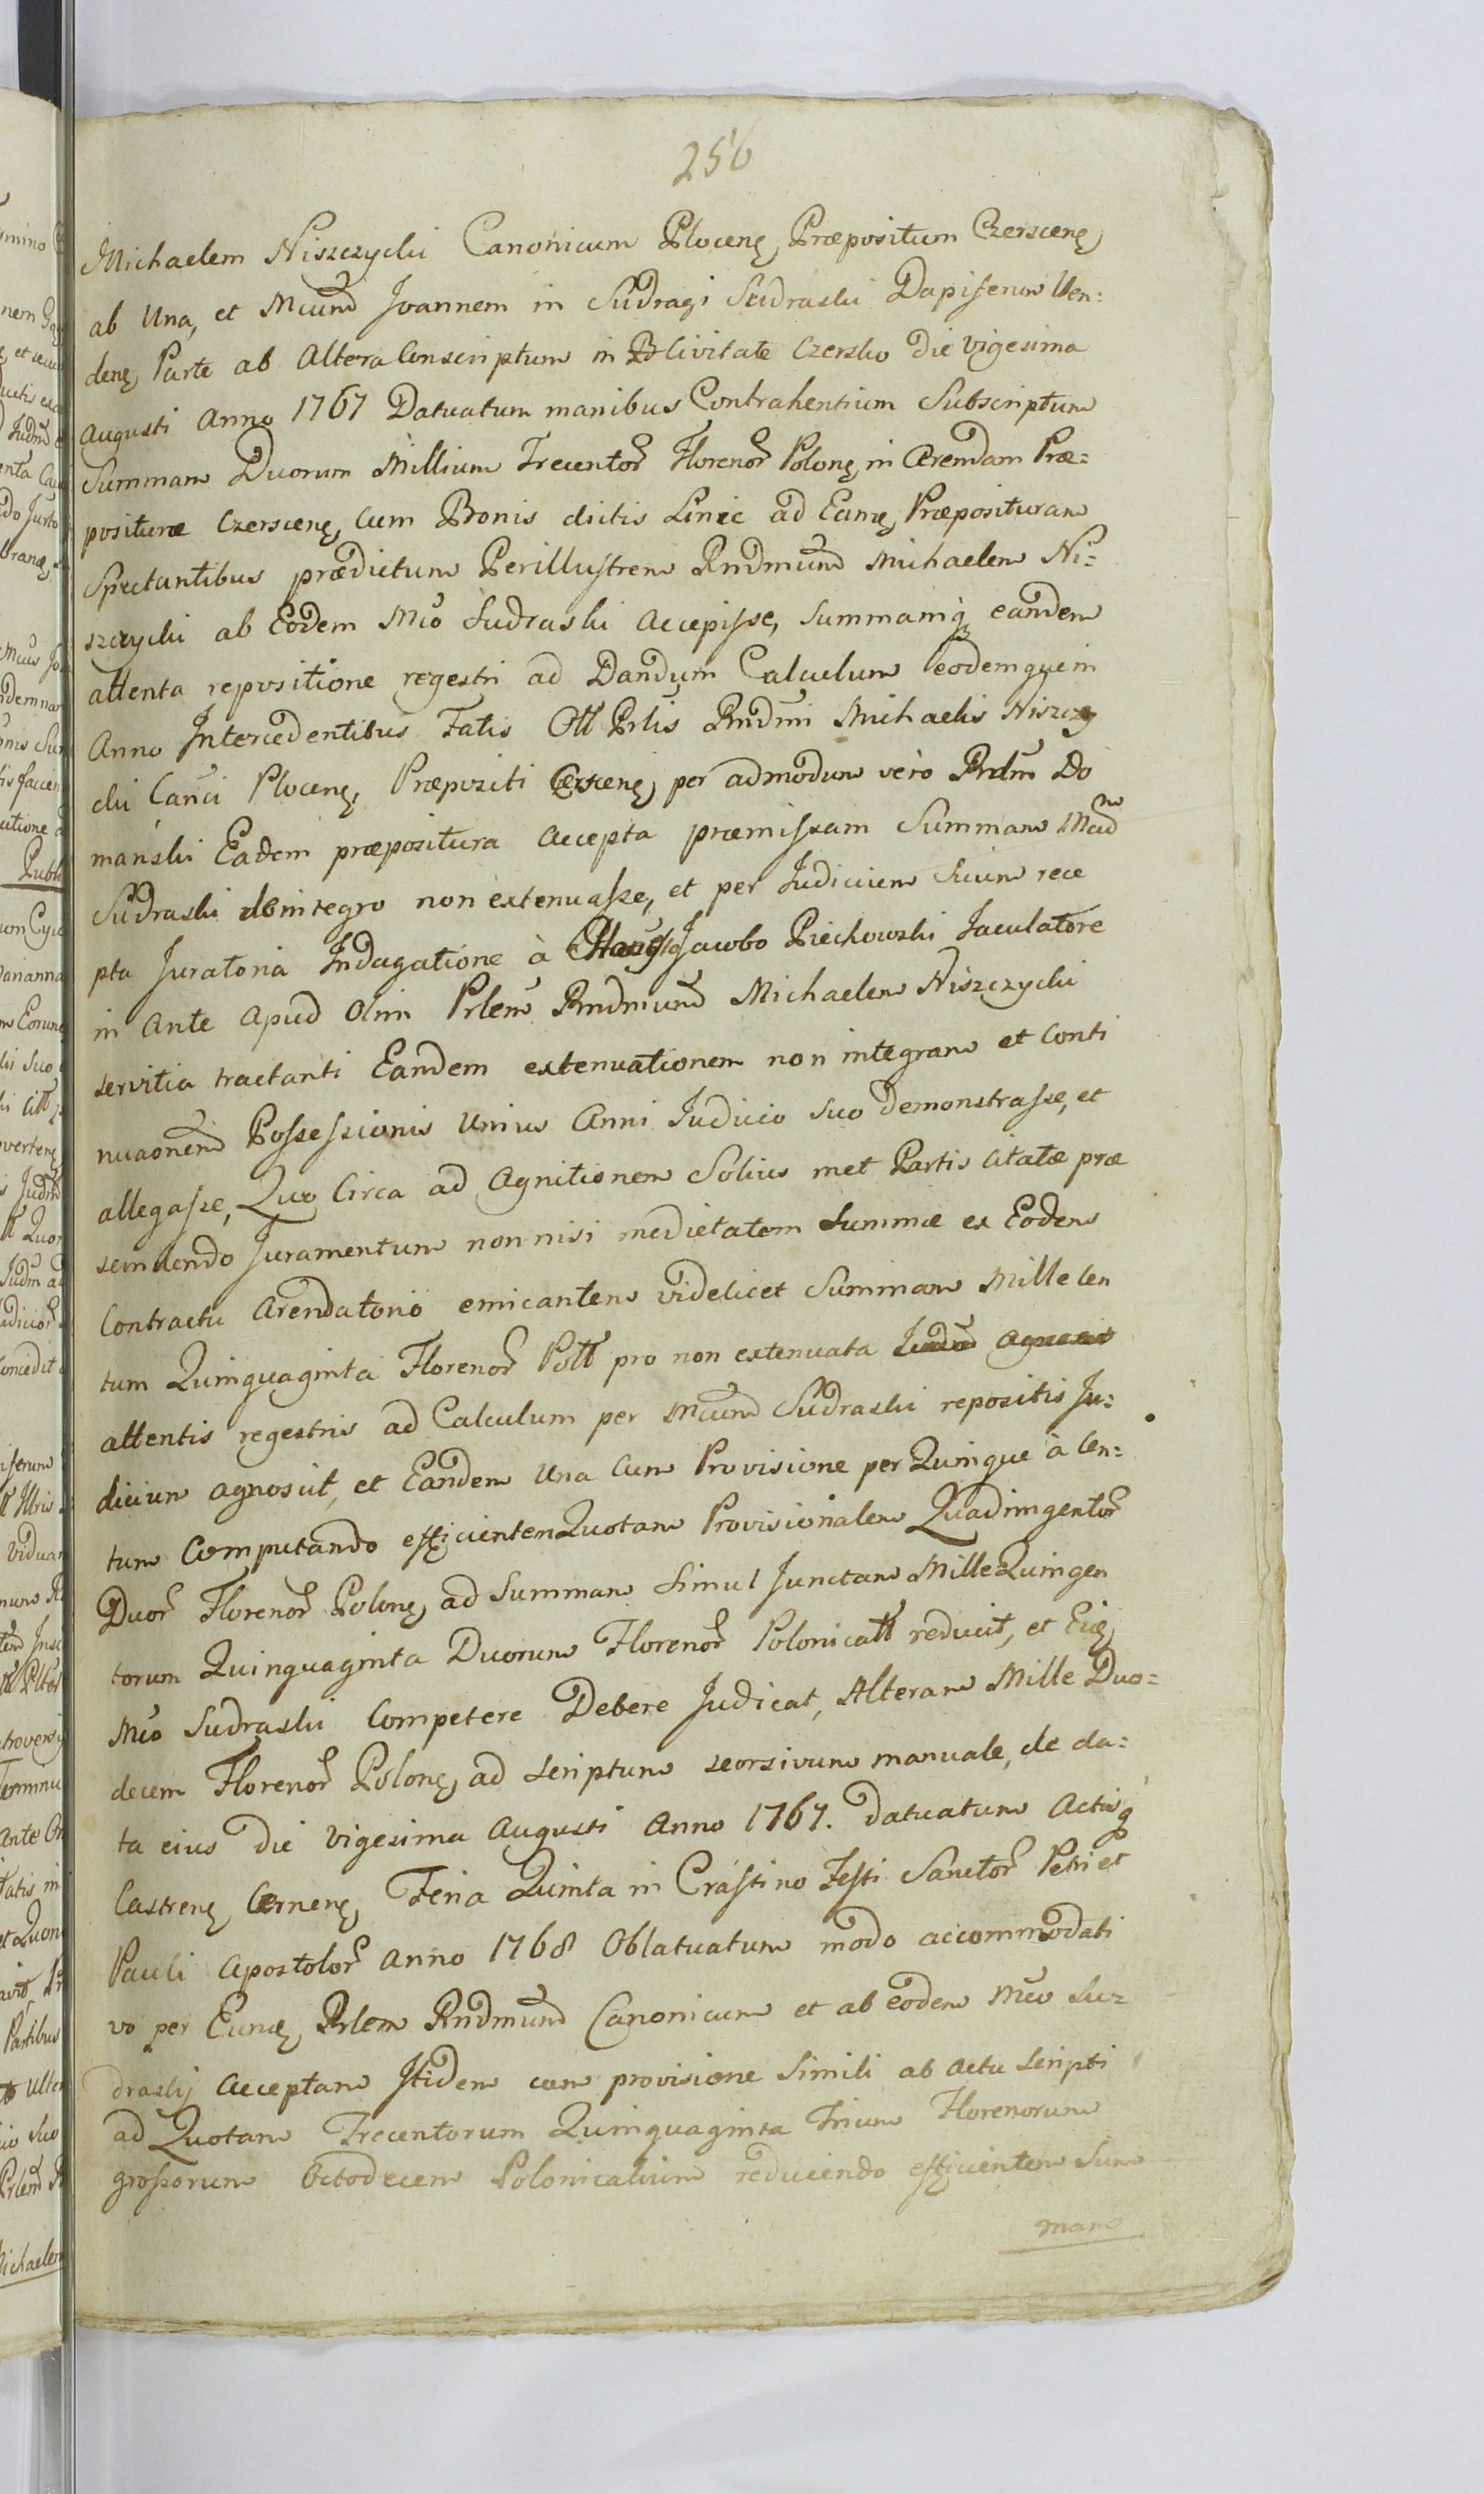 256
Michaelem Niszczycki Canonicum Plocenę, Præpositum Czerscenę,
ab Una, et Mcum̃d Joannem in Sudragi Sudraski Dapiferum Wen:
denę, Parte ab Altera Conscriptum in Civitate Czersko Die Vigesima
Augusti Anno 1767 Datuatum manibus Contrahentium Subscriptum
Summam Duorum Millium Trecentor̃ Florenor̃ Polonę, in Arendam Præ=
posituræ Czerscenę, cum Bonis dictis Linie ad Eamę, Præposituram
Spectantibus prædictum Perillustrem Rndmum̃d Michaelem Ni=
szczycki ab Eodem Mco Sudraski accepisse, summamq̨ eandem
attenta repositione regestri ad Dandum Calculum eodemque in
Anno Intercedentibus Fatis Ott Prlis Rndmi Michaelis Niszczy
cki Canci Plocenę, Præpositi Czerscenę, per admodum vero Rndm̃ Do
manski Eadem præpositura accepta præmissam Summam Mcd̃no
Sudraski de integro non extenuasse, et per Judicium Suum rece
pta Juratoria Indagatione à Jacobo Piechowski Jaculatore
in Ante apud Olim Prlem̃ Rndmum̃d Michaelem Niszczycki
servitia tractanti Eandem extenuationem non integram et Conti
nuaonem̃d Possessionis Unius Anni Judicio Suo demonstrasse, et
allegasse, Quo Circa ad Agnitionem Solius met Partis Citatæ præ
scindendo Juramentum non nisi medietatem Summæ ex Eodem
Contractu Arendatorio emicantem videlicet Summam Mille Cen
tum Quinquaginta Florenor̃ Poltt pro non extenuata
attentis regestris ad Calculum per Mcum̃d Sudraski repositis Ju:
dicium agnoscit, et Eandem Una Cum Provisione per Quinque à Cen:
tum Computando efficientem Quotam Provisionalem Quadringentor̃
Duor̃ Florenor̃ Polonę, ad Summam Simul Junctam Mille Quingen
torum Quinquaginta Duorum Florenor̃ Polonicatt reducit, et Eidę,
Mco Sudraski Competere Debere Judicat, Alteram Mille Duo=
decem Florenor̃ Polonę, ad scriptum seorsivum manuale, de da:
ta eius Die Vigesima Augusti Anno 1767. Datuatum Actisq̨
Castrenę, Cernenę, Feria Quinta in Crastino Festi Sanctor̃ Petri et
Pauli Apostolor̃ Anno 1768 Oblatuatum modo accommodati
vo per Eundę, Prlem Rndmum̃d Canonicum et ab eodem Mco Su=
draskij acceptam Itidem cum provisione simili ab actu scripti
ad Quotam Trecentorum Quinquaginta Trium Florenorum
grossorum Octodecem Polonicalium reducendo efficientem Sum
mam